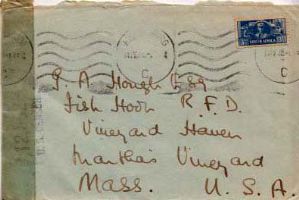 SOUTH AFRICA
P. A. Hough Esq
Fish Hook R.F.D.
Vineyard Haven
Martha's Vineyard
Mass. U.S.A.